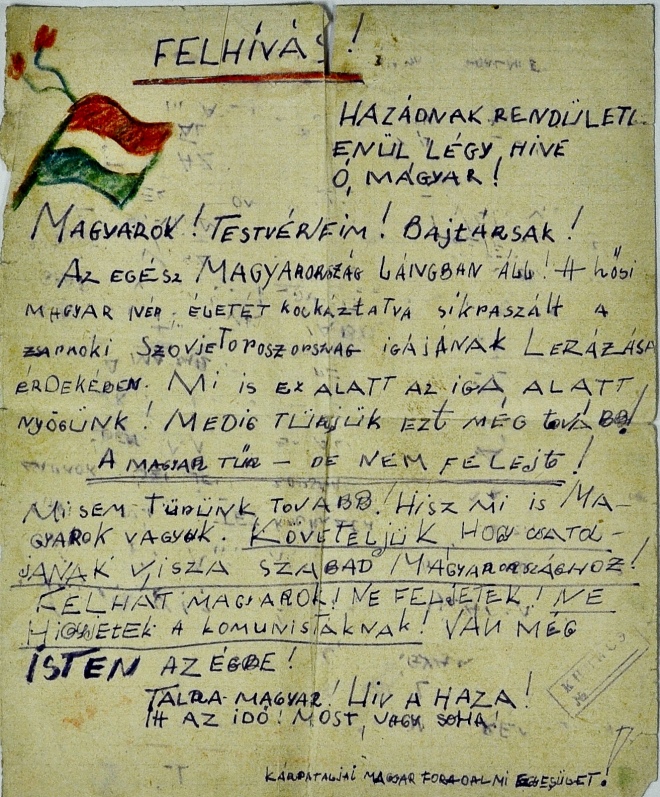 FELHÍVÁS!
HAZÁDNAK RENDÜLETL-
ENÜL LÉGY HIVE
Ó, MAGYAR!
MAGYAROK! TESTVÉREIM! BAJTÁRSAK!
AZ EGÉSZ MAGYARORSZÁG LÁNGBAN ÁLL! A hősi
MAGYAR NÉP ÉLETÉT KOCKÁZTATVA SIKRASZÁLT A
ZSARNOKI SZOVJETOROSZORSZÁG IGÁJÁNAK LERÁZÁSA
ÉRDEKÉBEN. MI IS EZ ALATT AZ IGA ALATT
NYÖGÜNK! MEDIG TŰRJÜK EZT MÉG TOVÁBB!
A MAGYAR TŰR – DE NEM FELEJT!
MI SEM TŰRÜNK TOVÁBB! HISZ MI IS MA-
GYAROK VAGYUK. KÖVETELJÜK HOGY CSATOL-
JANAK VISZA SZABAD MAGYARORSZÁGHOZ!
FELHÁT MAGYAROK! NE FÉLJETEK! NE
HIGYJETEK A KOMUNISTÁKNAK! VAN MÉG
ISTEN AZ ÉGBE!
TALPRA MAGYAR! HIV A HAZA!
ITT AZ IDŐ! MOST, VAGY SOHA!
KÁRPÁTALJAI MAGYAR FORADALMI EGYESÜLET!